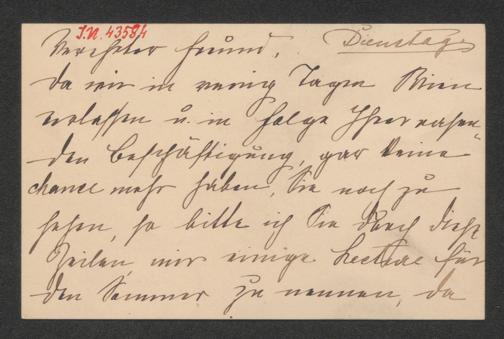 I.N. 43584
Dienstag.
Verehrter Freund,
da wir in wenig Tagen Wien
verlassen u. in Folge Ihrer rasen-
den Beschäftigung, gar keine
chance mehr haben, Sie noch zu
sehen, so bitte ich Sie durch diese
Zeilen, mir einige Lecture für
den Sommer zu nennen, da